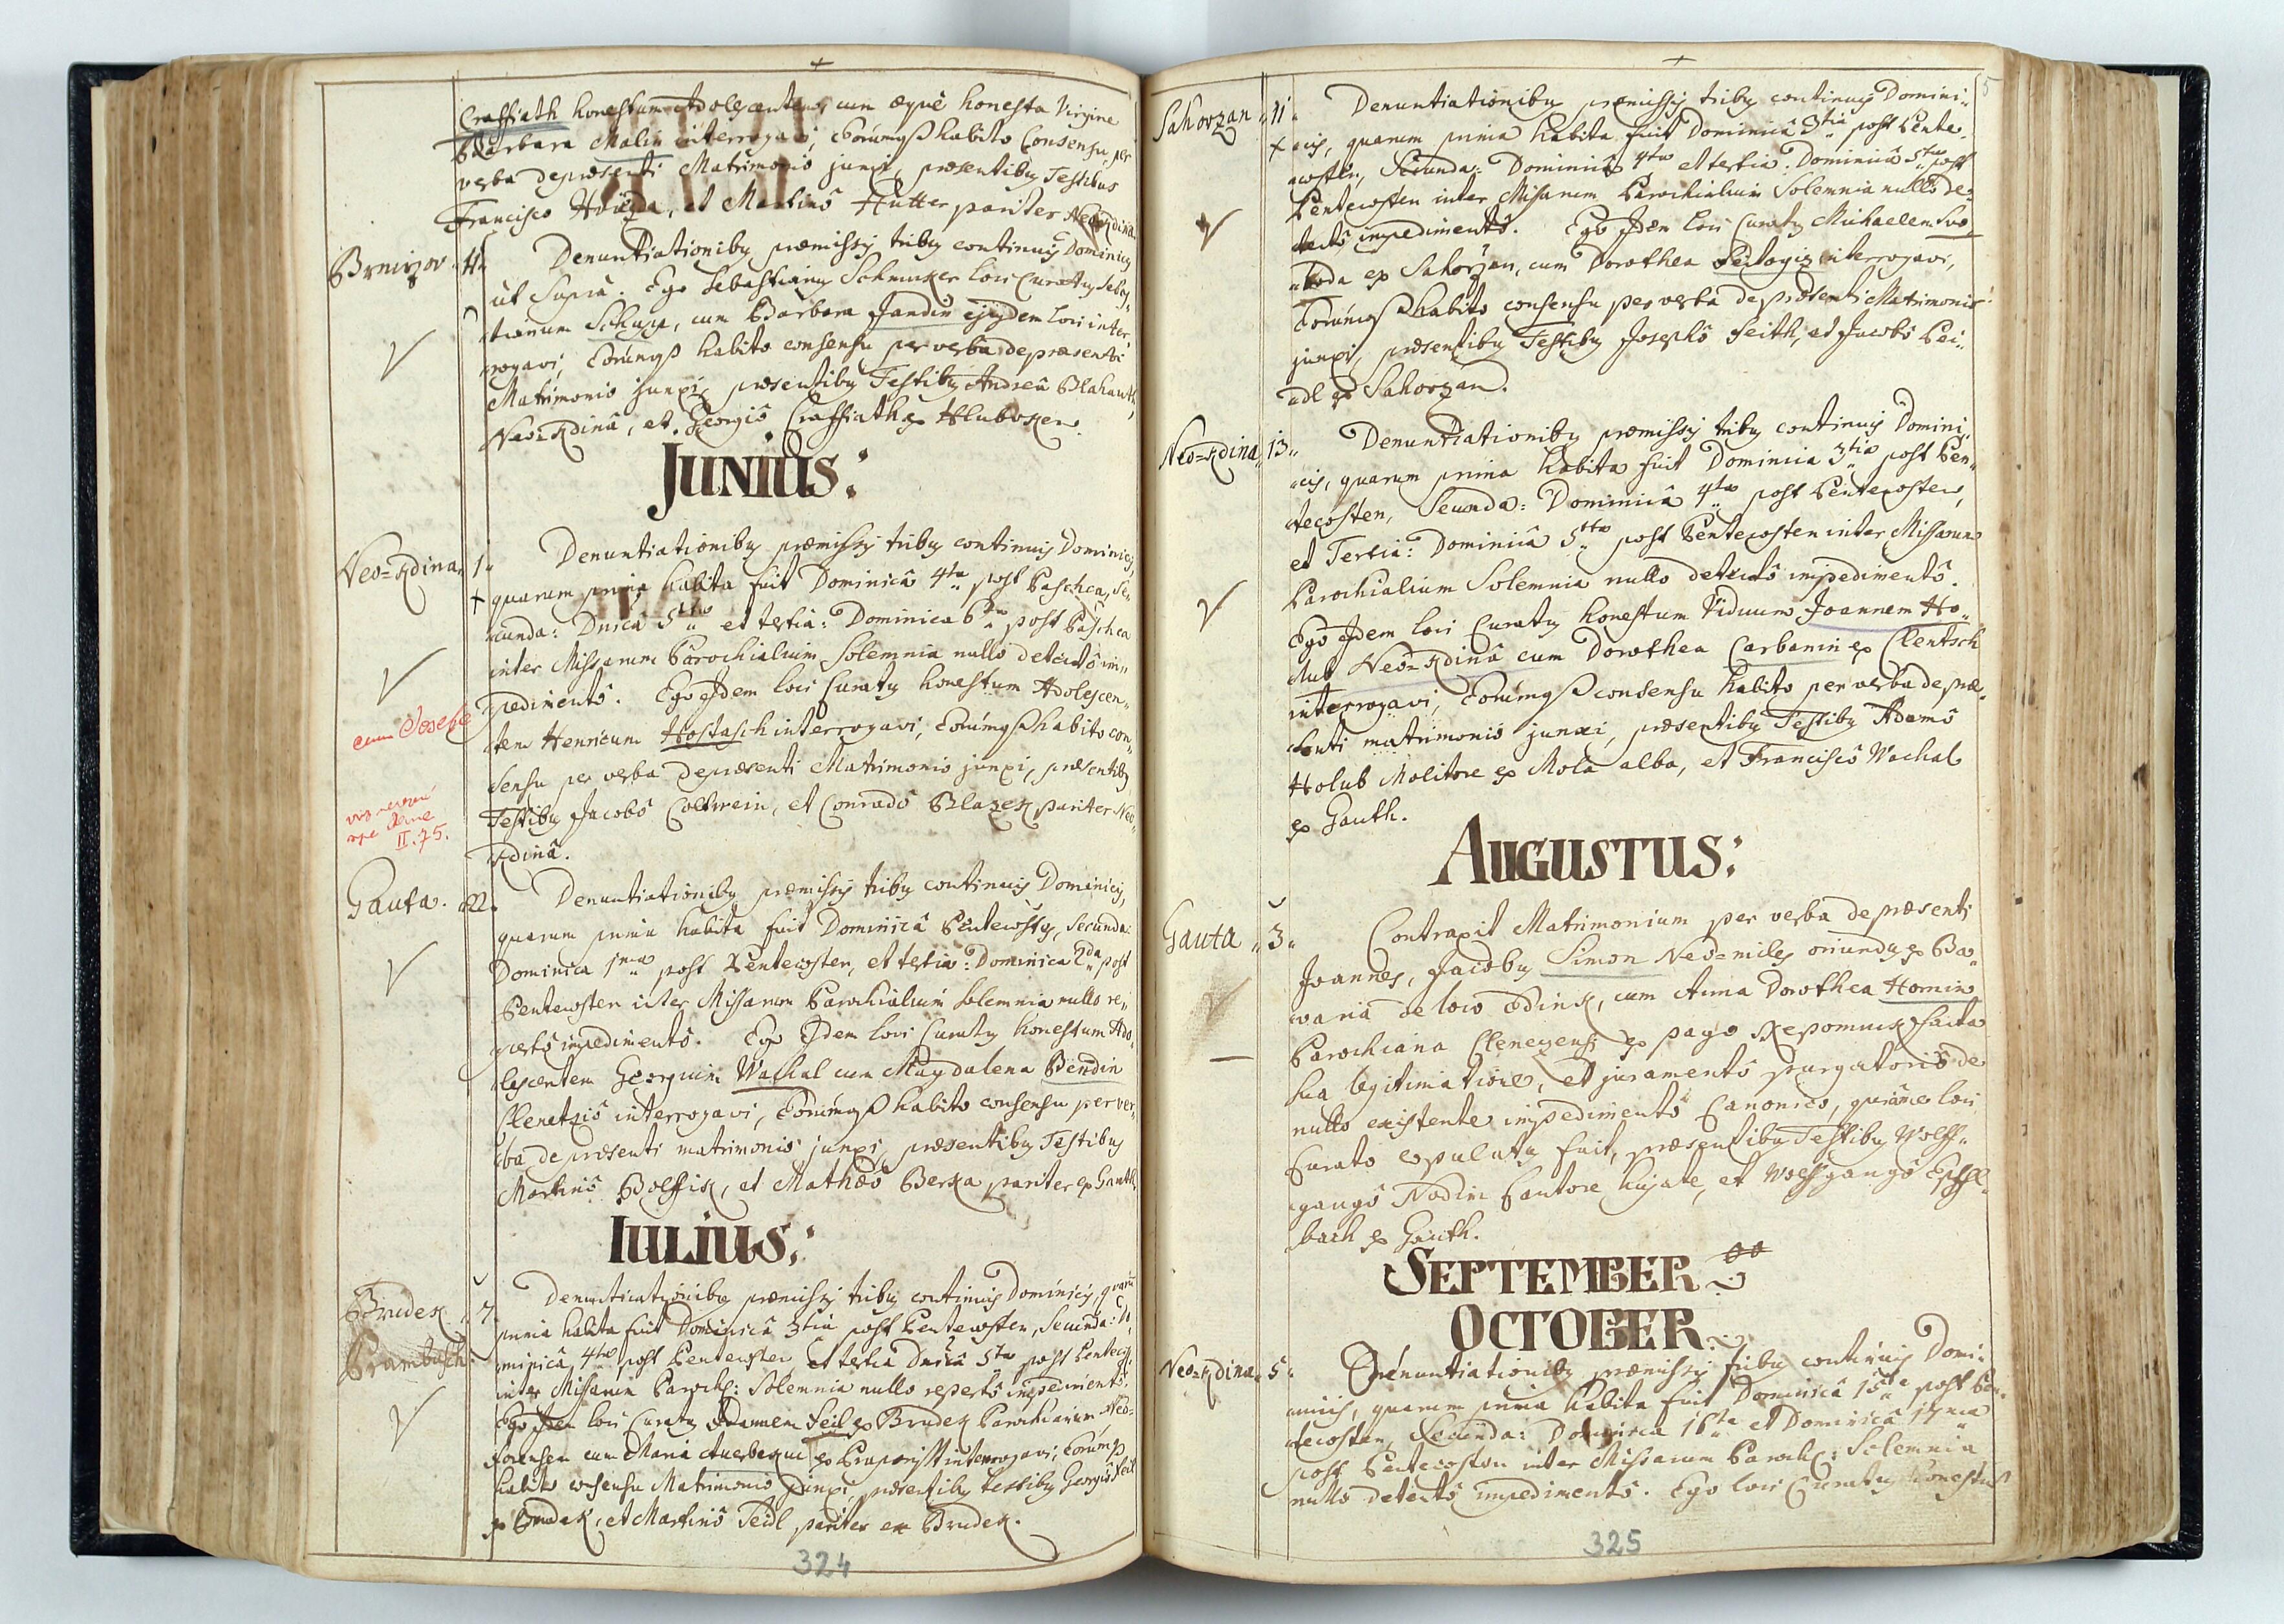 Craffiath honestum Adolescentem, cum æque honesta Virgine
Barbara Malin interrogavi, Eorumqß habito Consensu, per
verba depræsenti Matrimonio junxi, præsentibus Testibus
Francisco Hvizda, et Martinô Hutter pariter
Denuntiationibus præmissis tribus continuis Dominicis
ut Supra. Ego Sebastianus Schmuker loci Curatus Seba„
stianum Schupp, cum Barbara Jandin ejusdem loci inter„
rogavi, Eorumqß habito consensu per verba depræsenti
Matrimonio junxi, præsentibus Testibus Andreâ Blahauth
Neo=Rdinâ, et Georgiô Craffiath ex Hluboker.
JUNIUS:
Neo=Rdina. 1. Denuntiationibus præmissis tribus continuis Dominicis,
quarum prima habita fuit Dominicâ 4ta post Pascha, Se„
cunda: Dnicâ 5ta et tertia: Dominica 6ta post Pascha
inter Missarum Parochialium Solemnia nullô detectô im„
pedimentô. Ego Idem loci Curatus honestum Adolescen„
tem Henricum Hostasch interrogavi, Eorumqß habito con„
cum Josepha
sensu per verba depræsenti Matrimonio junxi, præsentibus
Testibus Jacobô Coltwein, et Conradô Blazek pariter Neo„
II. 75.
Rdinâ.
Gauta. 22. Denuntiationibus præmissis tribus continuis Dominicis,
quarum prima habita fuit Dominicâ Pentecostes, Secunda:
Dominica 1ma post Pentecosten, et tertia: Dominica 2da post
Pentecosten inter Missarum Parochialium Solemnia nullô re„
pertô impedimentô. Ego Idem loci Curatus honestum Ado„
lescentem Georgium Wachal cum Magdalena Bendin
Clenetzio interrogavi, Eorumqß habito consensu per ver„
ba depræsenti matrimonio junxi, præsentibus Testibus
Martinô Bolffik, et Mathæô Berka pariter ex Gauth.
IULIUS:
Brudek 7. Denuntiationibus præmissis tribus continuis Dominicis, quarum
prima habita fuit Dominicâ 3tia post Pentecosten, Secunda: Do„
Prambusch minicâ 4ta post Pentecosten et tertia Dnicâ 5ta post Pentecos:
inter Missarum Paroch: Solemnia nullo repertô impedimentô.
Ego Idem loci Curatus Joannem Seil ex Brudek Parochianum Neo=
forensem cum Maria interrogavi, Eorumqß
habito consensu Matrimonio junxi, præsentibus testibus Georgiô Seil
ex Brudek, et Martinô Seidl pariter ex Brudek.
324
Sahorzan 11. Denuntiationibus præmissis tribus continuis Domini„
cis, quarum prima habita fuit Dominicâ 3tia post Pente„
costen, Secunda: Dominicâ 4ta et tertia: Dominicâ 5ta post
Pentecosten inter Missarum Parochialium Solemnia nullô de„
tectô impedimentô. Ego Idem loci Curatus Michaelem Svo„
boda ex Sahorzan, cum Dorothea interrogavi,
Eorumqß habito consensu per verba depræsenti Matrimonio
junxi, præsentibus Testibus Josephô Seith, et Jacobô Bei„
adl ex Sahorzan.
Neo=Rdina 13. Denuntiationibus præmissis tribus continuis Domini„
cis, quarum prima habita fuit Dominica 3tia post Pen„
tecosten, Secunda: Dominicâ 4ta post Pentecosten,
et Tertia: Dominicâ 5ta post Pentecosten inter Missarum
Parochialium Solemnia nullo detectô impedimentô.
Ego Idem loci Curatus honestum Viduum Joannem Ho„
lub Neo=Rdinâ cum Dorothea Carbanin ex Clentsch
interrogavi, Eorumqß consensu habito per verba depræ„
senti matrimonio junxi, præsentibus Testibus Adamô
Holub Molitore ex Mola alba, et Franciscô Wachal
ex Gauth.
AUGUSTUS:
Gauta 3. Contraxit Matrimonium per verba depræsenti
Joannes, Jacobus Simon Neo=miles oriundus ex Ba„
varia de loco Edink, cum Anna Dorothea Homin
Parochiana Clenezensi ex pago Nepomuk facta
sua legitimatione, et juramentô purgatoriô de
nullo existente impedimentô Canonico, qui à me loci
Curato copulatus fuit, præsentibus Testibus Wolff„
gangô Nodin Cantore hujate, et Wolffgangô
bach ex Gauth.
SEPTEMBER
OCTOBER.
Neo=Rdina 5. Denuntiationibus præmissis tribus continuis Domi„
nicis, quarum prima habita fuit Dominicâ 15ta post Pen„
tecosten, Secunda: Dominica 16ta et Dominicâ 17ma
post Pentecosten inter Missarum Paroch: Solemnia
nullo detectô impedimentô. Ego loci Curatus honestum
325